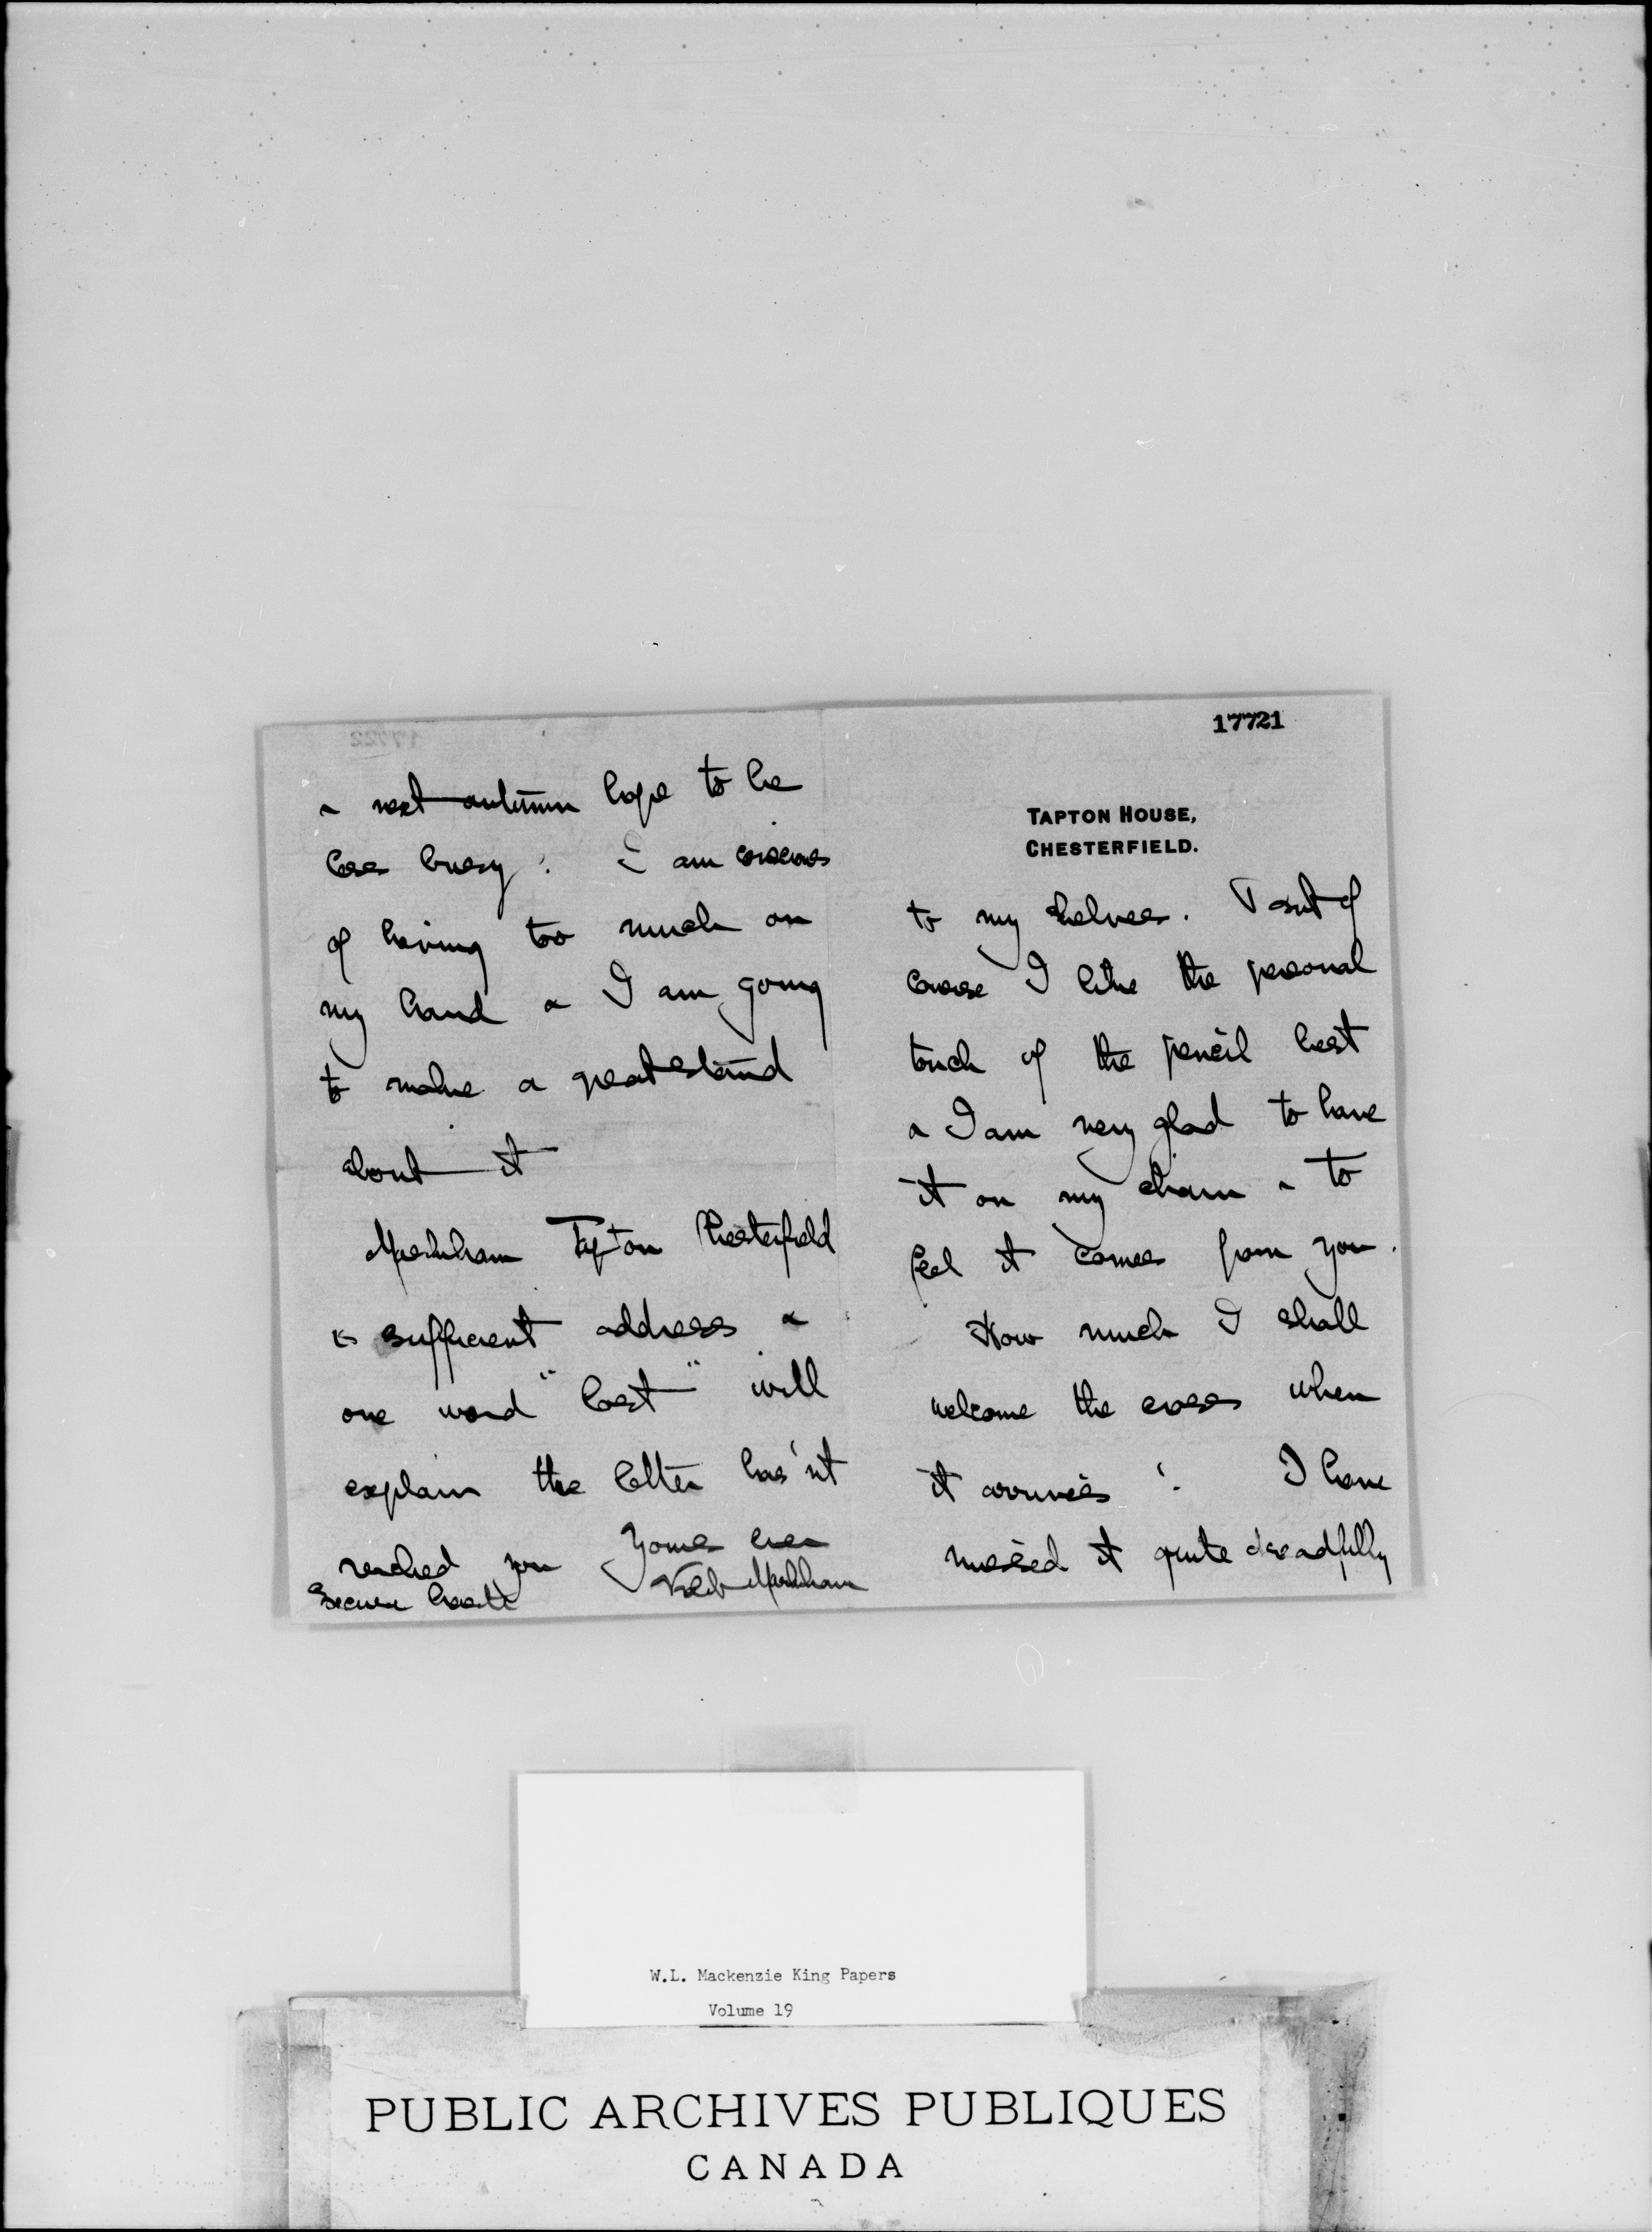 & next autumn hope to be
less busy. I am conscious
of having too much on
my hand & I am going
to make a great stand
about it
Markham Tapton Chesterfield
is sufficient address &
one word "lost" will
explain the letter has'nt
reached you Yours ever
Violet Markham
17721
TAPTON HOUSE,
CHESTERFIELD.
to my shelves. But of
course I like the personal
touch of the pencil best
& I am very glad to have
it on my chain & to
feel it comes from you.
How much I shall
welcome the cross when
it arrives! I have
missed it quite dreadfully
W.L. Mackenzie King Papers
Volume 19
PUBLIC ARCHIVES PUBLIQUES
CANADA